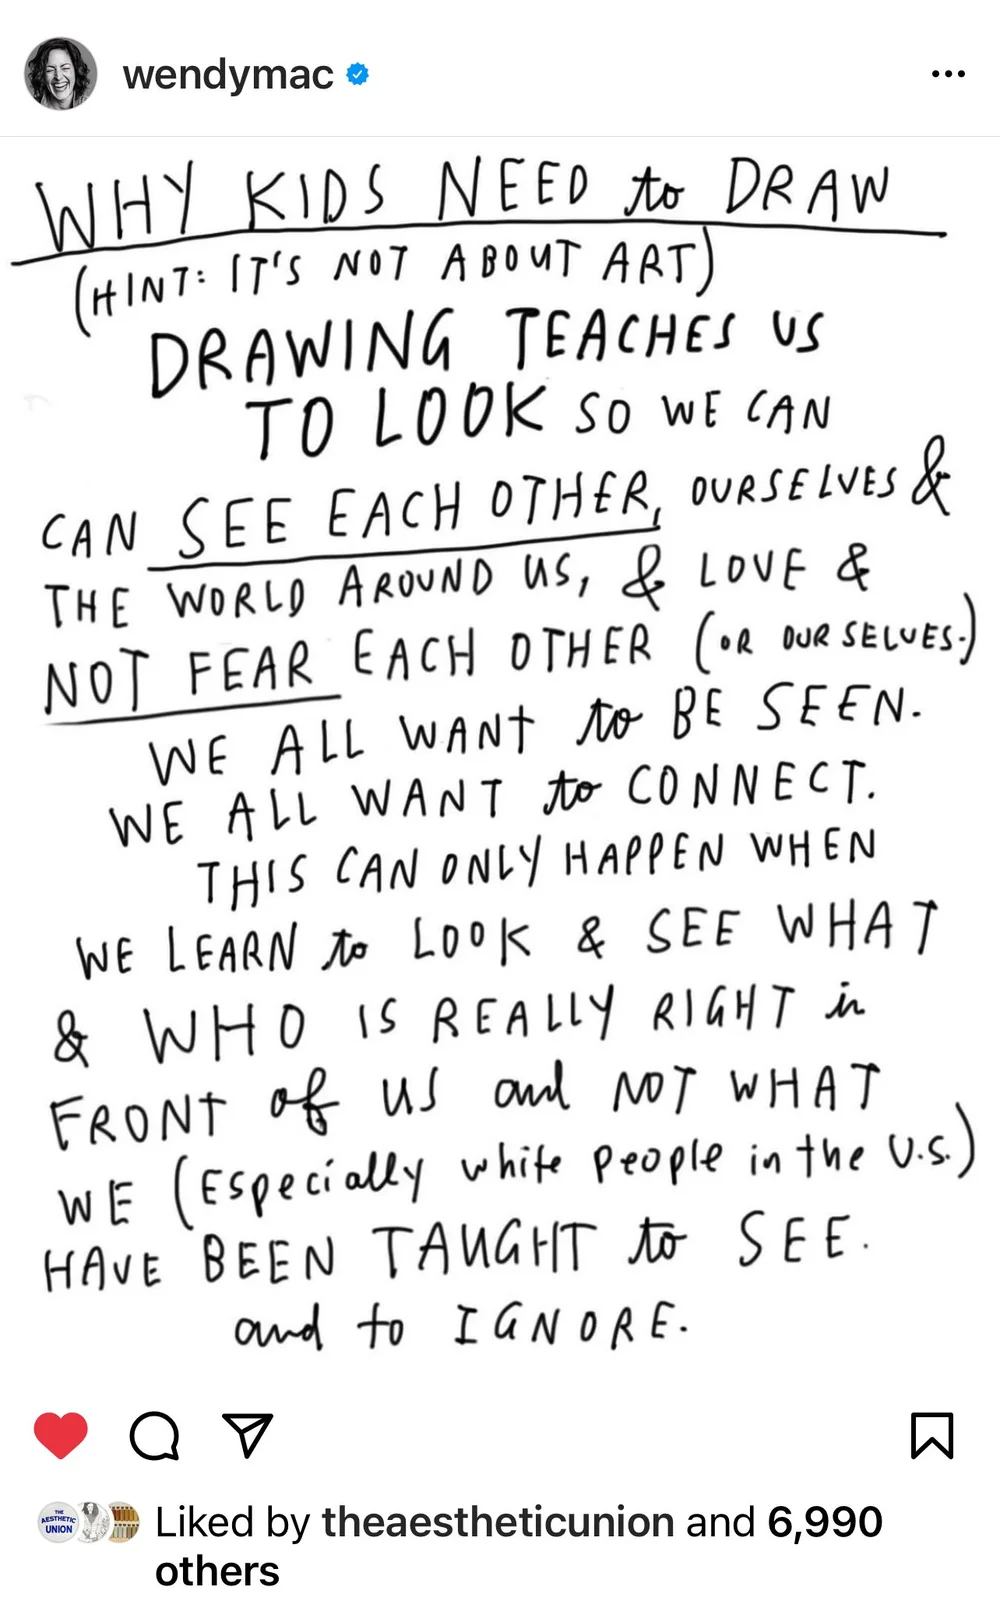 wendymac
WHY KIDS NEED to DRAW
(HINT: IT'S NOT ABOUT ART)
DRAWING TEACHES US
TO LOOK SO WE CAN
CAN SEE EACH OTHER, OURSELVES &
THE WORLD AROUND US, & LOVE &
NOT FEAR EACH OTHER (OR OURSELVES.)
WE ALL WANT to BE SEEN.
WE ALL WANT to CONNECT.
THIS CAN ONLY HAPPEN WHEN
WE LEARN to LOOK & SEE WHAT
& WHO IS REALLY RIGHT in
FRONT of US and NOT WHAT
WE (Especially white people in the U.S.)
HAVE BEEN TAUGHT to SEE.
and to IGNORE.
THE
AESTHETIC
UNION
Liked by theaestheticunion and 6,990
others